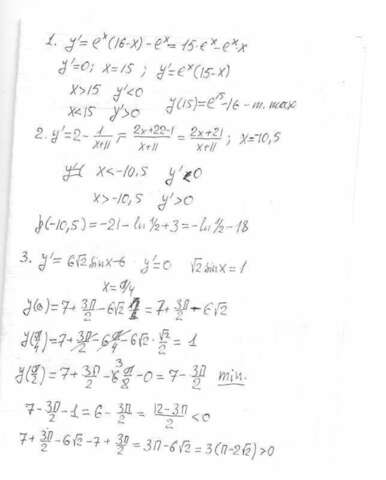 1. y'=e^x(16-x)-e^x=15·e^x-e^x x
y'=0; x=15 ; y'=e^x(15-x)
x>15 y'<0
x<15 y'>0 y(15)=e^15-16-т.max
2. y'=2-1/(x+11)=(2x+22-1)/(x+11)=(2x+21)/(x+11); x=-10,5
x<-10,5 y'<0
x>-10,5 y'>0
y(-10,5)=-21-ln 1/2+3=-ln 1/2-18
3. y'=6√2 sinx-6 y'=0 √2 sinx=1
x=π/4
y(0)=7+3π/2-6√2 =7+3π/2-6√2
y(π/4)=7+3π/2-6π/4-6√2·√2/2=1
y(π/2)=7+3π/2-6π/2-0=7-3π/2 min.
7-3π/2-1=6-3π/2=(12-3π)/2<0
7+3π/2-6√2-7+3π/2=3π-6√2=3(π-2√2)>0